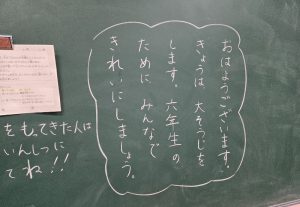 おはようございます。
きょうは 大そうじを
します。六年生の
ために みんなで
きれいにしましょう。
をもってきた人は
いんしつに
てね!!